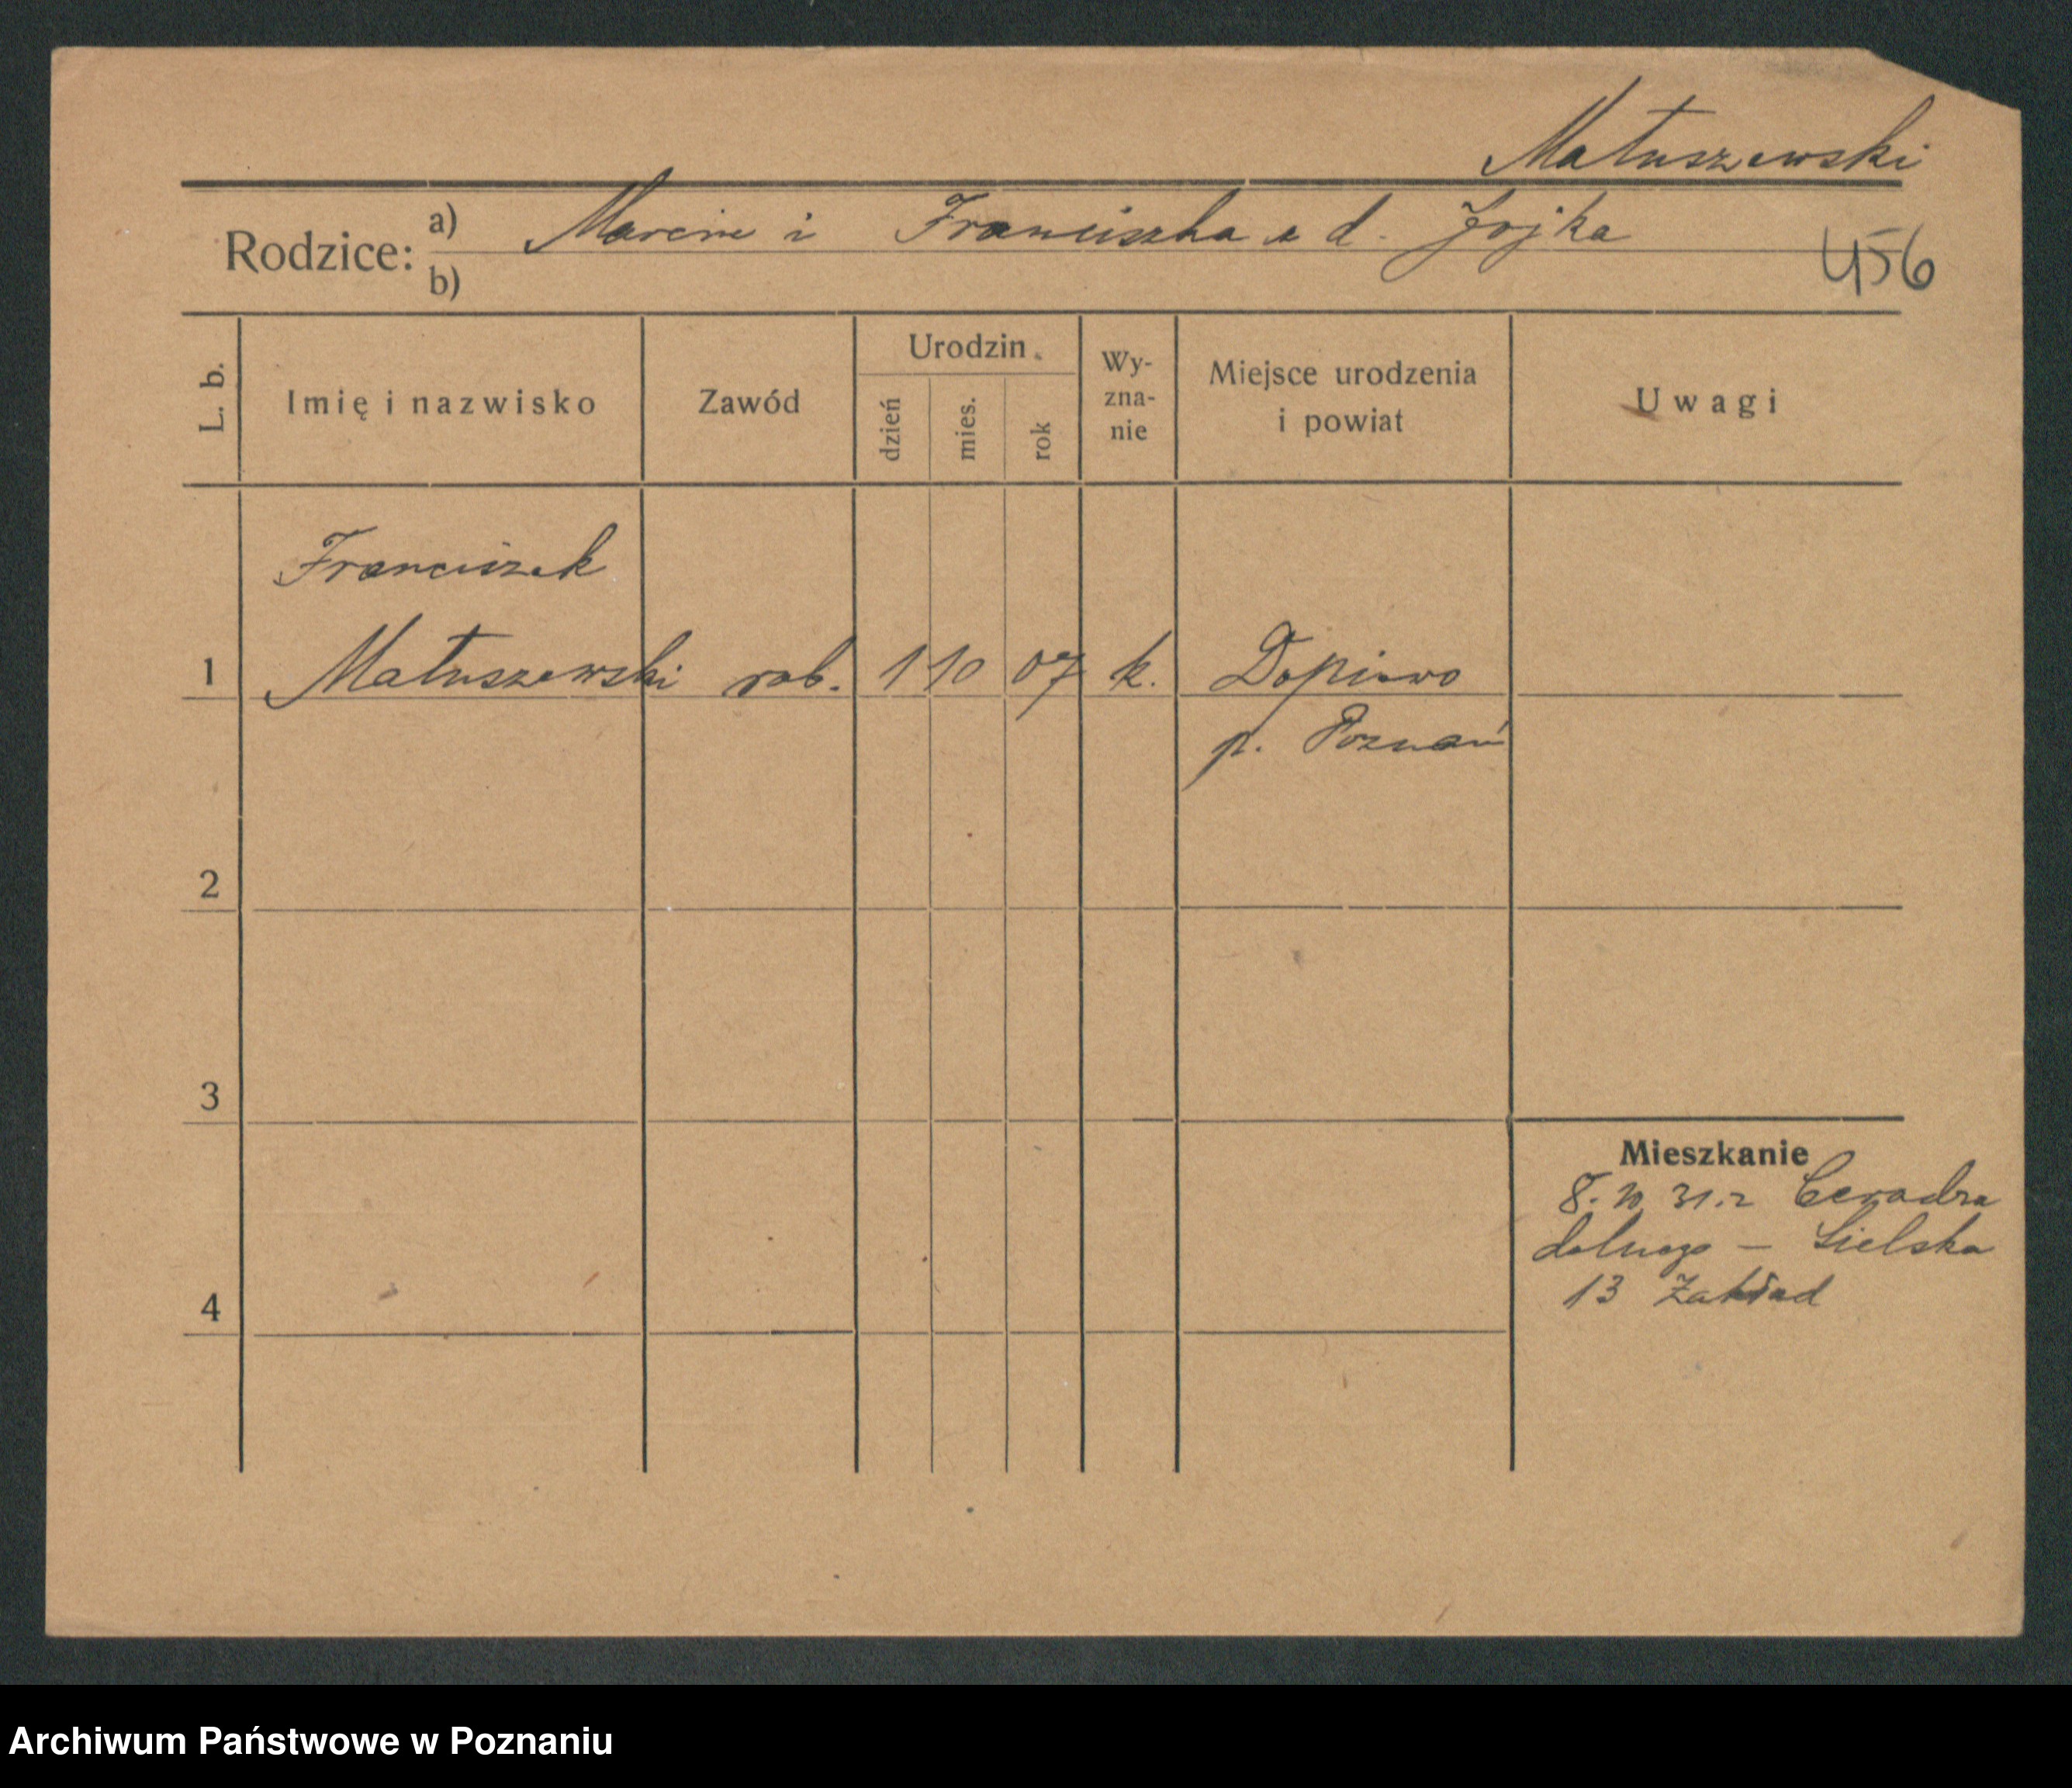 Matuszewski
Rodzice:
a) Marcin i Franciszka z d. Jojka
b)
456
L. b.
Imię i nazwisko
Zawód
Urodzin
dzień
mies.
rok
Wy-
zna-
nie
Miejsce urodzenia
i powiat
Uwagi
Franciszek
1 Matuszewski rob. 1 10 07 k. Dopiewo
p. Poznań
2
3
4
Mieszkanie
8. 10 31. z Ceradza
dolnego – Sielska
13 Zakład
Archiwum Państwowe w Poznaniu